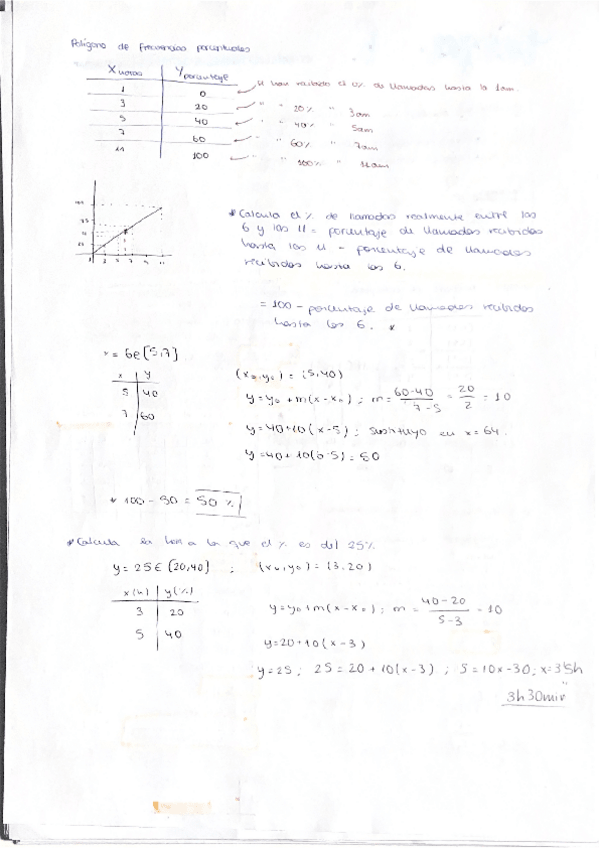 Polígono de frecuencias porcentuales
X horas Y porcentaje
1 0 han recibido el 0% de llamadas hasta la 1am.
3 20 " " 20% " 3am
5 40 " " 40% " 5am
7 60 " " 60% " 7am
11 100 " " 100% " 11am
* Calcula el % de llamadas realmente entre las
6 y las 11 = porcentaje de llamadas recibidas
hasta las 11 - porcentaje de llamadas
recibidas hasta las 6.
= 100 - porcentaje de llamadas recibidas
hasta las 6. *
x = 6 ∈ [5,7]
x y
5 40
7 60
(x₀, y₀) = (5,40)
y = y₀ + m(x - x₀) ; m = 60-40 / 7-5 = 20 / 2 = 10
y = 40 + 10(x - 5) ; sustituyo en x = 6
y = 40 + 10(6-5) = 50
* 100 - 50 = 50%
* Calcula la hora a la que el % es del 25%
y = 25 ∈ [20,40] ; (x₀, y₀) = (3,20)
x(h) y(%)
3 20
5 40
y = y₀ + m(x - x₀) ; m = 40-20 / 5-3 = 10
y = 20 + 10(x - 3)
y = 25 ; 25 = 20 + 10(x - 3) ; 5 = 10x - 30 ; x = 3'5h
"
3h 30min